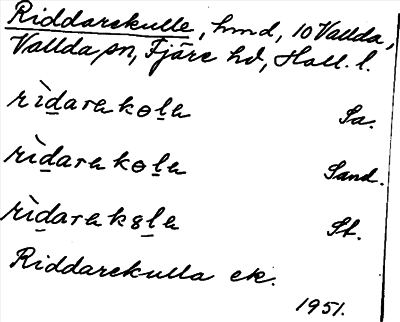 Riddarekulle, hmd, 10 Vallda,
Vallda sn, Fjäre hd, Hall. l.
rìdarəkɵlə Sa.
rìdarəkɵlə Sand.
rìdarək8lə St.
Riddarekulla ek.
1951.